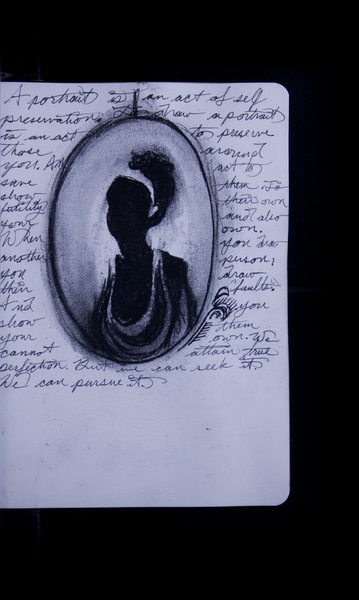 A portrait is an act of self
preservation. To draw a portrait
is an act to preserve
those around
you. An act to
save them. To
show their own
futility and also
your own.
When you draw
another person,
you draw
their faults.
And you
show them
your own. We
cannot attain true
perfection. But we can seek it.
We can pursue it.